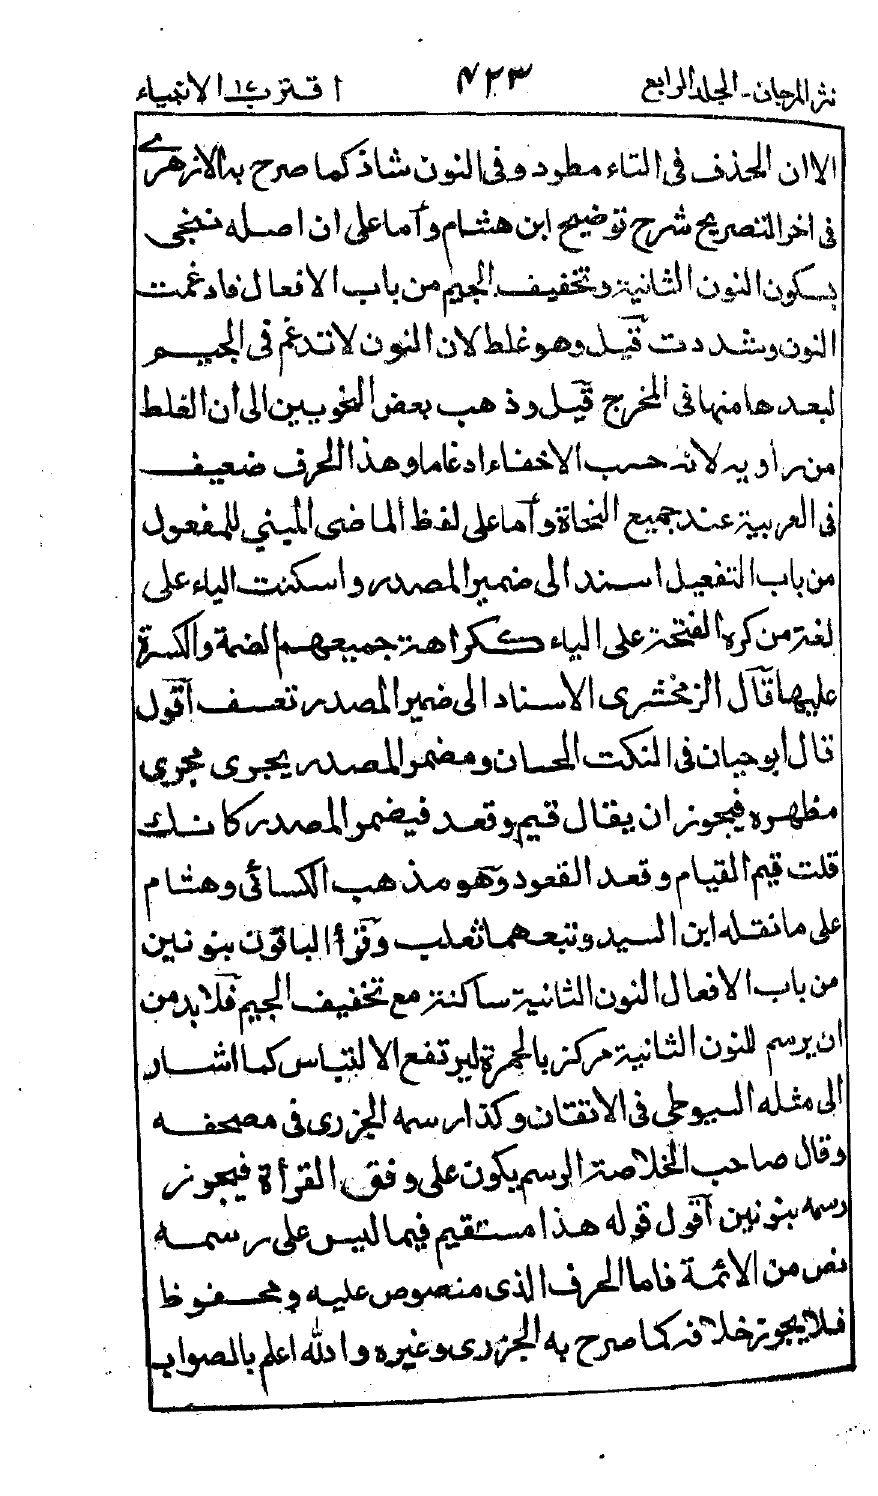 نثر المرجان - الجلد الرابع ۴۲۳ اقترب ١٧ الانبياء
الا ان الحذف فى التاء مطرد وفى النون شاذ كما صرح به الازهرى
فى اخر التصريح شرح توضيح ابن هشام وآما على ان اصله ننجى
بسكون النون الثانية وتخفيف الجيم من باب الافعال فادغمت
النون وشددت قيل وهو غلط لان النون لا تدغم فى الجيم
لبعدها منها فى المخرج قيل وذهب بعض النحويين الى أن الغلط
من راويه لانه حسب الاخفاء ادغاما وهذا الحرف ضعيف
فى العربية عند جميع النحاة وآما على لفظ الماضى المبني للمفعول
من باب التفعيل اسند الى ضمير المصدر واسكنت الياء على
لغة من كره الفتحة على الياء ككراهة جميعهم الضمة والكسرة
عليها قآل الزمخشرى الاسناد الى ضمير المصدر تعسف آقول
قال أبو حيان فى النكت الحسان ومضمر المصدر يجرى مجرى
مظهره فيجوز ان يقال قيم وقعد فيضمر المصدر كانك
قلت قيم القيام وقعد القعود وهو مذهب الكسائى وهشام
على ما نقله ابن السيد وتبعهما ثعلب وقرأ الباقون بنونين
من باب الافعال النون الثانية ساكنة مع تخفيف الجيم فلا بد من
ان يرسم للنون الثانية مركز بالحمرة ليرتفع الالتباس كما اشار
الى مثله السيوطى فى الاتقان وكذا رسمه الجزرى فى مصحفه
وقال صاحب الخلاصة الرسم يكون على وفق القرأة فيجوز
رسمه بنونين آقول قوله هذا مستقيم فيما ليس على رسمه
نص من الائمة فاما الحرف الذى منصوص عليه ومحفوظ
فلا يجوز خلافه كما صرح به الجزرى وغيره والله اعلم بالصواب